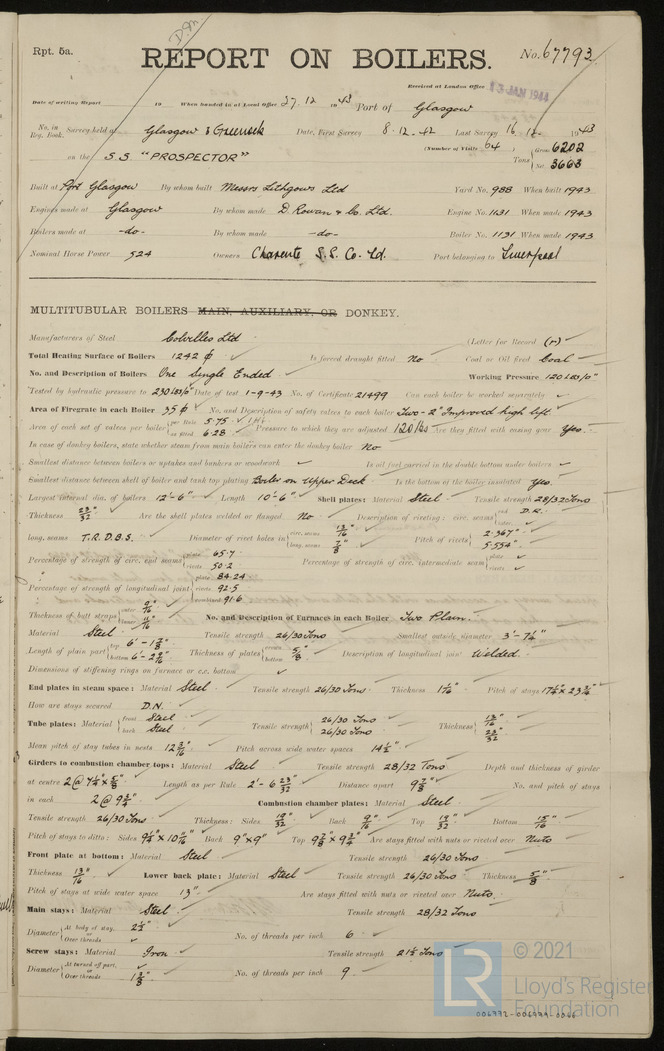 D.M
Rpt. 5a.
REPORT ON BOILERS.
No. 67793
Received at London Office 13 JAN 1944
Date of writing Report 19 When handed in at Local Office 27.12 1943 Port of Glasgow
No. in Reg. Book. Survey held at Glasgow & Greenock Date, First Survey 8.12.42 Last Survey 16.12. 1943
on the S.S "PROSPECTOR" (Number of Visits 64) Tons Gross 6202 Net 3663
Built at Port Glasgow By whom built Messrs Lithgows Ltd Yard No. 988 When built 1943
Engines made at Glasgow By whom made D. Rowan & Co. Ltd. Engine No. 1131 When made 1943
Boilers made at -do- By whom made -do- Boiler No. 1131 When made 1943
Nominal Horse Power 524 Owners Charente S.S. Co. Ld. Port belonging to Liverpool
MULTITUBULAR BOILERS MAIN, AUXILIARY, OR DONKEY.
Manufacturers of Steel Colvilles Ltd (Letter for Record (r))
Total Heating Surface of Boilers 1242 ▯ Is forced draught fitted No Coal or Oil fired Coal
No. and Description of Boilers One Single Ended Working Pressure 120 Lbs/▯"
Tested by hydraulic pressure to 230 Lbs/▯" Date of test 1-9-43 No. of Certificate 21499 Can each boiler be worked separately ✓
Area of Firegrate in each Boiler 35 ▯ No. and Description of safety valves to each boiler Two-2" Improved high lift.
Area of each set of valves per boiler per Rule 5.75 as fitted 6.28 Pressure to which they are adjusted 120 lbs Are they fitted with easing gear Yes.
In case of donkey boilers, state whether steam from main boilers can enter the donkey boiler No
Smallest distance between boilers or uptakes and bunkers or woodwork ✓ Is oil fuel carried in the double bottom under boilers ✓
Smallest distance between shell of boiler and tank top plating Boiler on Upper Deck Is the bottom of the boiler insulated Yes.
Largest internal dia. of boilers 12'-6" Length 10'-6" Shell plates: Material Steel Tensile strength 28/32 Tons
Thickness 23/32" Are the shell plates welded or flanged No Description of riveting: circ. seams end D.R. inter.
long. seams T.R.D.B.S. Diameter of rivet holes in circ. seams 13/16" long. seams 7/8" Pitch of rivets 2.367" 5.554"
Percentage of strength of circ. end seams plate 65.7 rivets 50.2 Percentage of strength of circ. intermediate seam plate rivets
Percentage of strength of longitudinal joint plate 84.24 rivets 92.5 combined 91.6
Thickness of butt straps outer 9/16" inner 11/16" No. and Description of Furnaces in each Boiler Two Plain.
Material Steel Tensile strength 26/30 Tons Smallest outside diameter 3'-7¼"
Length of plain part top 6'-1⅞" bottom Thickness of plates crown bottom 5/8" Description of longitudinal joint Welded.
Dimensions of stiffening rings on furnace or c.c. bottom ✓
End plates in steam space: Material Steel Tensile strength 26/30 Tons Thickness Pitch of stays
How are stays secured D.N.
Tube plates: Material front Steel back Steel Tensile strength 26/30 Tons 26/30 Tons Thickness 13/16" 23/32"
Mean pitch of stay tubes in nests 12 3/16" Pitch across wide water spaces 14½"
Girders to combustion chamber tops: Material Steel Tensile strength 28/32 Tons Depth and thickness of girder
at centre 2 @ 7¼" x ⅝" Length as per Rule 2'-6 23/32" Distance apart 9⅞" No. and pitch of stays
in each 2 @ 9¾" Combustion chamber plates: Material Steel
Tensile strength 26/30 Tons Thickness: Sides 19/32" Back 9/16" Top 19/32" Bottom 15/16"
Pitch of stays to ditto: Sides 9¼" x 10 9/16" Back 9" x 9" Top 9⅞" x 9¾" Are stays fitted with nuts or riveted over Nuts
Front plate at bottom: Material Steel Tensile strength 26/30 Tons
Thickness 13/16" Lower back plate: Material Steel Tensile strength 26/30 Tons Thickness 5/8"
Pitch of stays at wide water space 13" Are stays fitted with nuts or riveted over Nuts.
Main stays: Material Steel Tensile strength 28/32 Tons
Diameter At body of stay, or Over threads 2½" No. of threads per inch 6
Screw stays: Material Iron Tensile strength 21½ Tons
Diameter At turned off part, or Over threads 1⅜" No. of threads per inch 9
© 2021
LR Lloyd's Register Foundation
006992-006999-0066